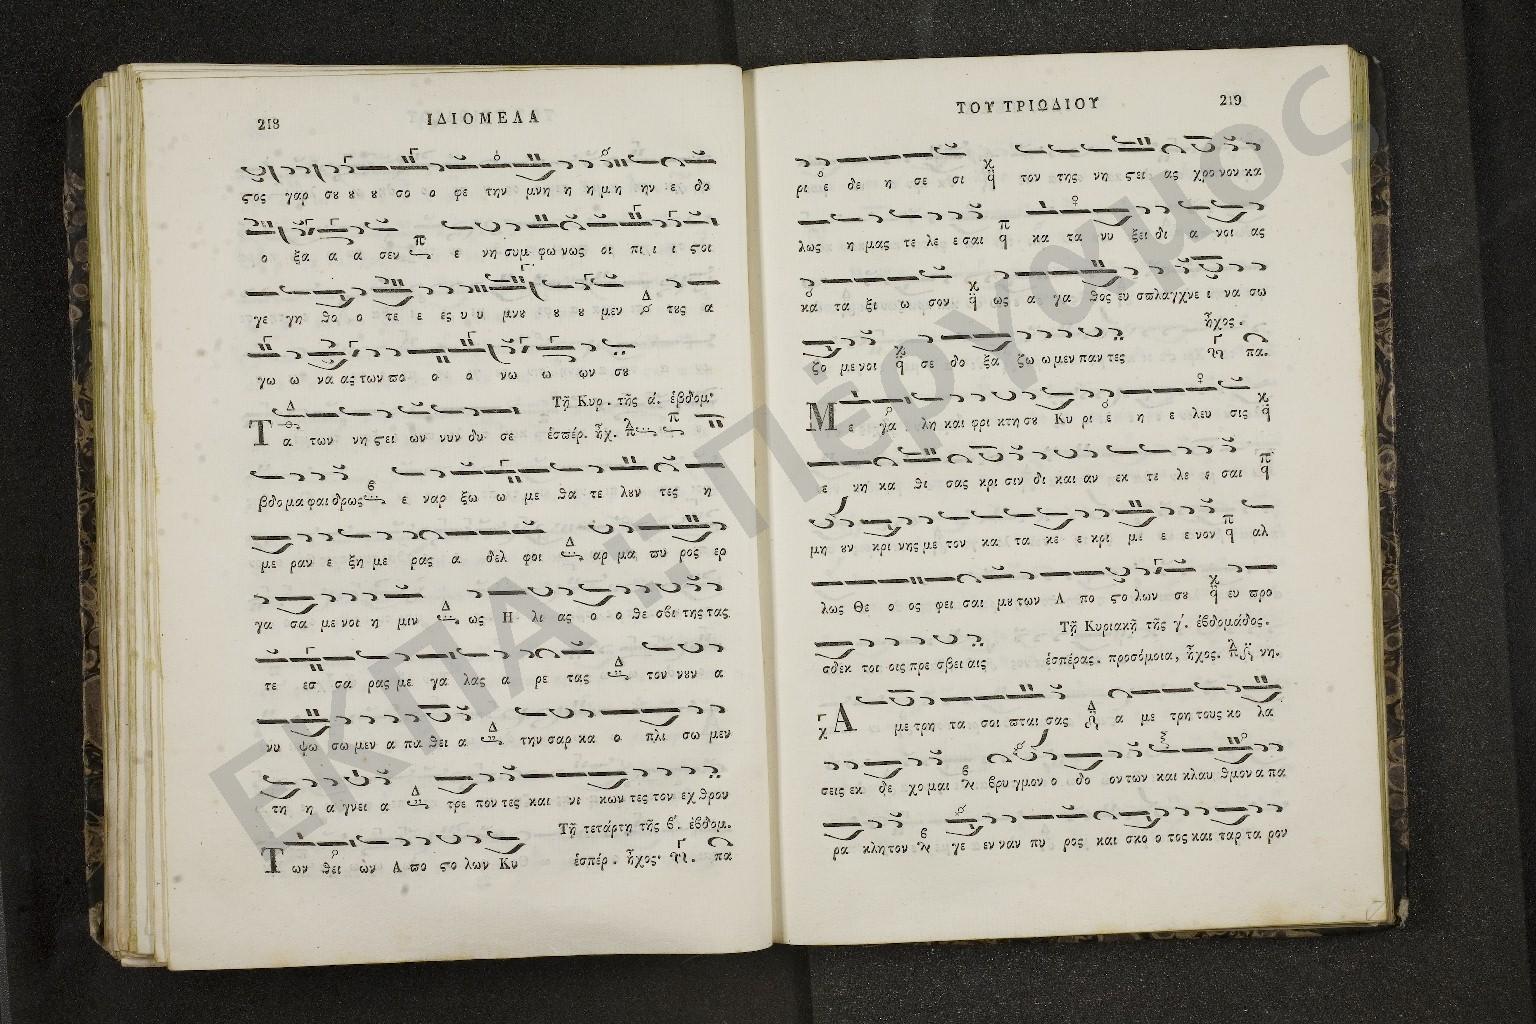 218
ΙΔΙΟΜΕΛΑ
ϛος γαρ σου ου ου σο ο φε την μνη η η μη ην ε δο
ο ξα α α σεν ε νη συμ φω νως οι πι ι ι ϛοι
γε γη θο ο τε ε ες υ υ μνου ου ου μεν τους α
γω ω να ας των πο ο ο νω ω ων σου
Τῇ Κυρ. τῆς ά. ἑβδομ.
Τα των νη ϛει ων νυν δυ σε ἑσπέρ. ἦχ.
βδο μα φαι δρως ε ναρ ξω ω με θα τε λουν τες η
με ραν ε ξη με ρας α δελ φοι αρ μα πυ ρος ερ
γα σα με νοι η μιν ως Η λι ας ο ο θε σβι της τας
τε εσ σα ρας με γα λας α ρε τας τον νουν α
νυ ψω σω μεν α πα θει α την σαρ κα ο πλι σω μεν
τη η α γνει α τρε πον τες και νι κων τες τον εχ θρον
Τῇ τετάρτῃ τῆς β΄. ἑβδομ.
Των θει ων Α πο ϛο λων Κυ ἑσπέρ. ἦχος. πα
ΤΟΥ ΤΡΙΩΔΙΟΥ
219
ρι ε δε η σε σι τον της νη ϛει ας χρο νον κα
λως η μας τε λε ε σαι κα τα νυ ξει δι α νοι ας
κα τα ξι ω σον ως α γα θος ευ σπλαγχνε ι να σω
ἦχος.
ζο με νοι σε δο ξα ζω ω μεν παν τες πα.
Με γα λη και φρι κτη σου Κυ ρι ε η ε λευ σις
ε νη κα θι σας κρι σιν δι και αν εκ τε λε ε σαι
μη ουν κρι νης με τον κα τα κε ε κρι με ε ε νον αλ
λως Θε ο ος φει σαι μου των Α πο ϛο λων σου ευ προ
Τῇ Κυριακῇ τῆς γ΄. ἑβδομάδος.
σδεκ τοι οις πρε σβει αις ἑσπέρας. προσόμοια, ἦχος. νη.
Α με τρη τα σοι πται σας α με τρη τους κο λα
σεις εκ δε χο μαι βρυ γμον ο δο ον των και κλαυ θμον α πα
ρα κλη τον γε εν ναν πυ ρος και σκο ο τος και ταρ τα ρον
ΕΚΠΑ - Πέργαμος